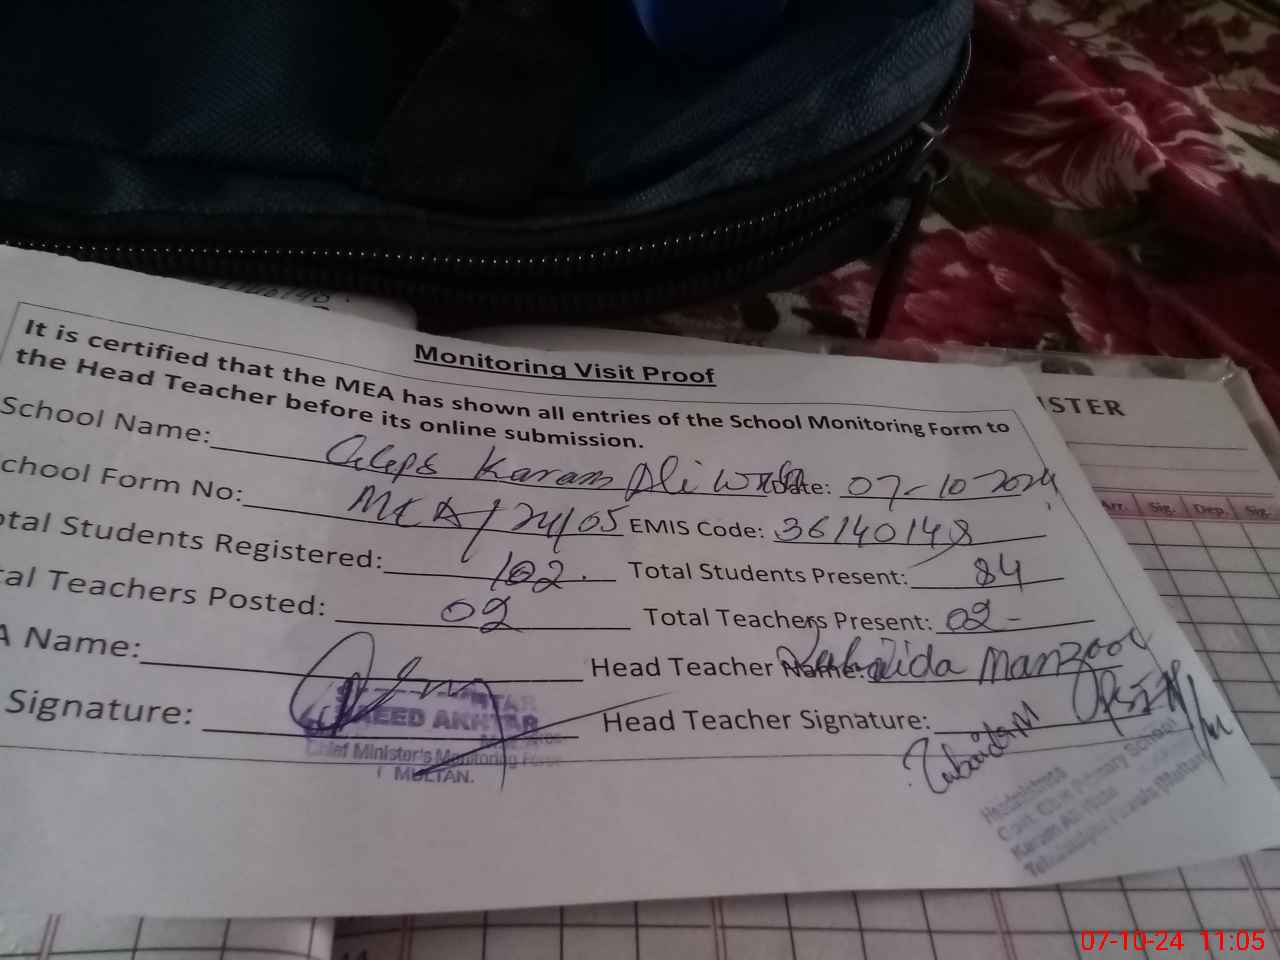 Monitoring Visit Proof
It is certified that the MEA has shown all entries of the School Monitoring Form to
the Head Teacher before its online submission.
School Name: Karam Ali Wala Date: 07-10-2024
chool Form No: MEA/24/05 EMIS Code: 36140148
otal Students Registered: 102. Total Students Present: 84
tal Teachers Posted: 02 Total Teachers Present: 02-
A Name: Head Teacher Name: Zubaida Manzoor
Signature: Head Teacher Signature: Zubaida M
SAEED AKHTAR
Chief Minister's Monitoring Force
MULTAN.
Headmistress
Govt. Primary School
Karam Ali Wala
ISTER
Arr. Sig. Dep. Sig.
07-10-24 11:05